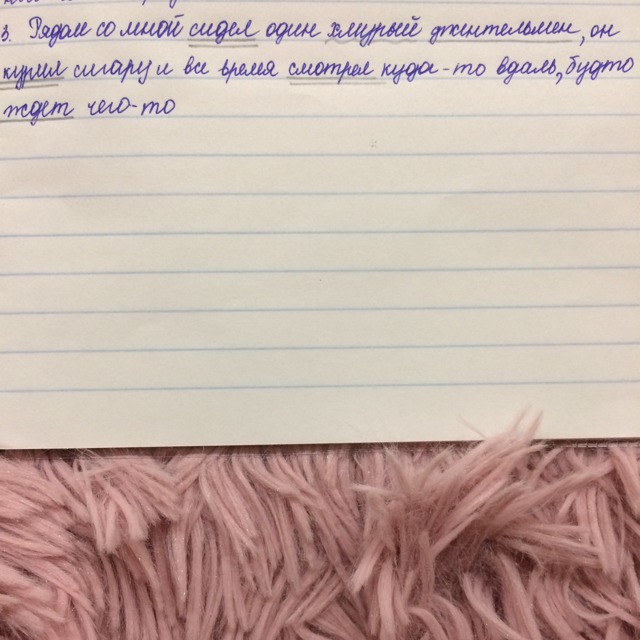 3. Рядом со мной сидел один хмурый джентельмен, он
курил сигару и все время смотрел куда-то вдаль, будто
ждет чего-то